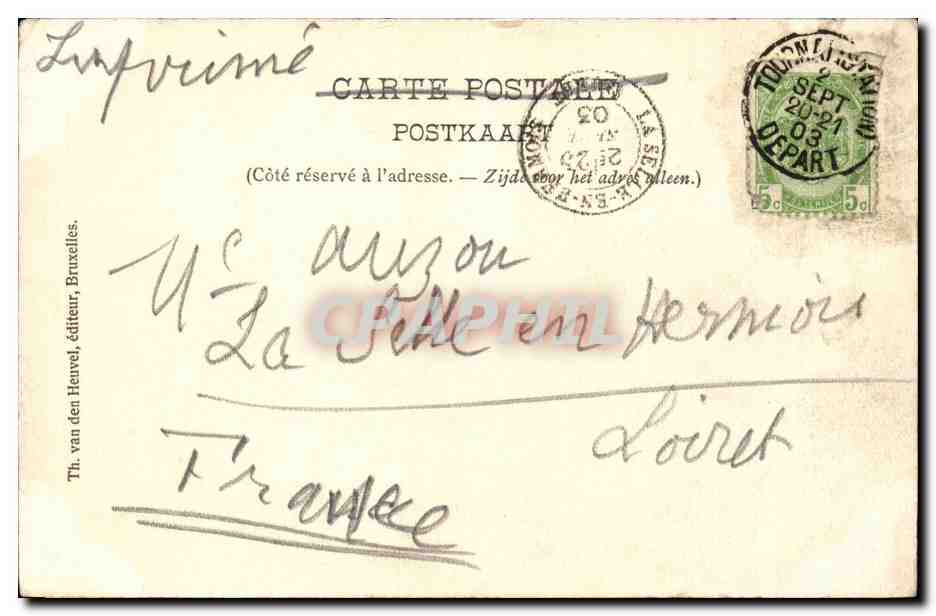 Imprimé
CARTE POSTALE
POSTKAART
(Côté réservé à l'adresse. — Zijde voor het adres alleen.)
TOURNAI (STATION)
2
SEPT
20-21
03
DEPART
LA SELLE-EN-HERMOIS
03
5c 5c
Th. van den Heuvel, éditeur, Bruxelles.
Auzou
La Selle en Hermois
CPAPHIL
Loiret
France